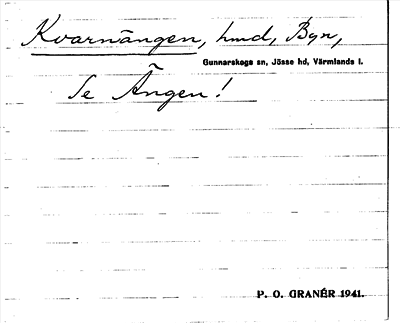 Kvarnängen, hmd, Byn,
Gunnarskogs sn, Jösse hd, Värmlands l.
Se Ängen!
P. O. GRANÉR 1941.